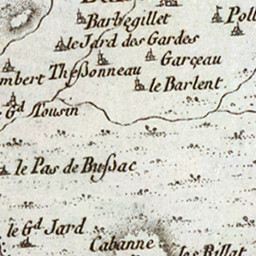 Barbegillet
Poll
le Jard des Gardes
Garçeau
mbert Thessonneau
le Barlent
Gd Nousin
le Pas de Bussac
le Gd Jard
Cabanne
les Billat